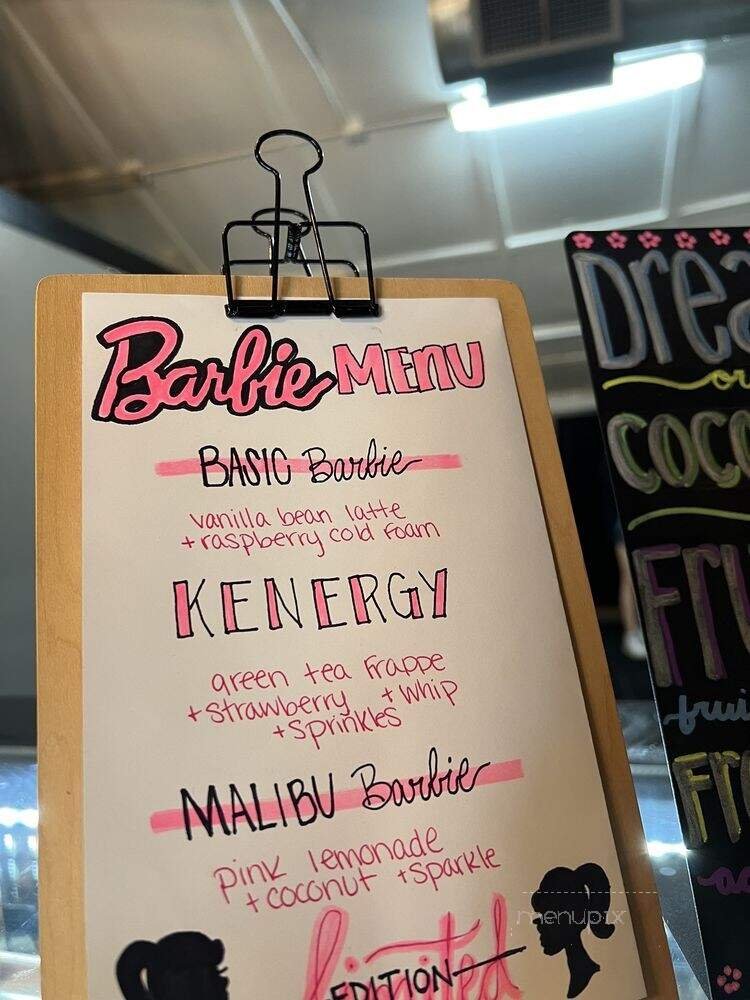 Barbie MENU
BASIC Barbie
vanilla bean latte
+raspberry cold foam
KENERGY
green tea frappe
+strawberry +whip
+sprinkles
MALIBU Barbie
pink lemonade
+coconut +sparkle
limited
EDITION
menupix